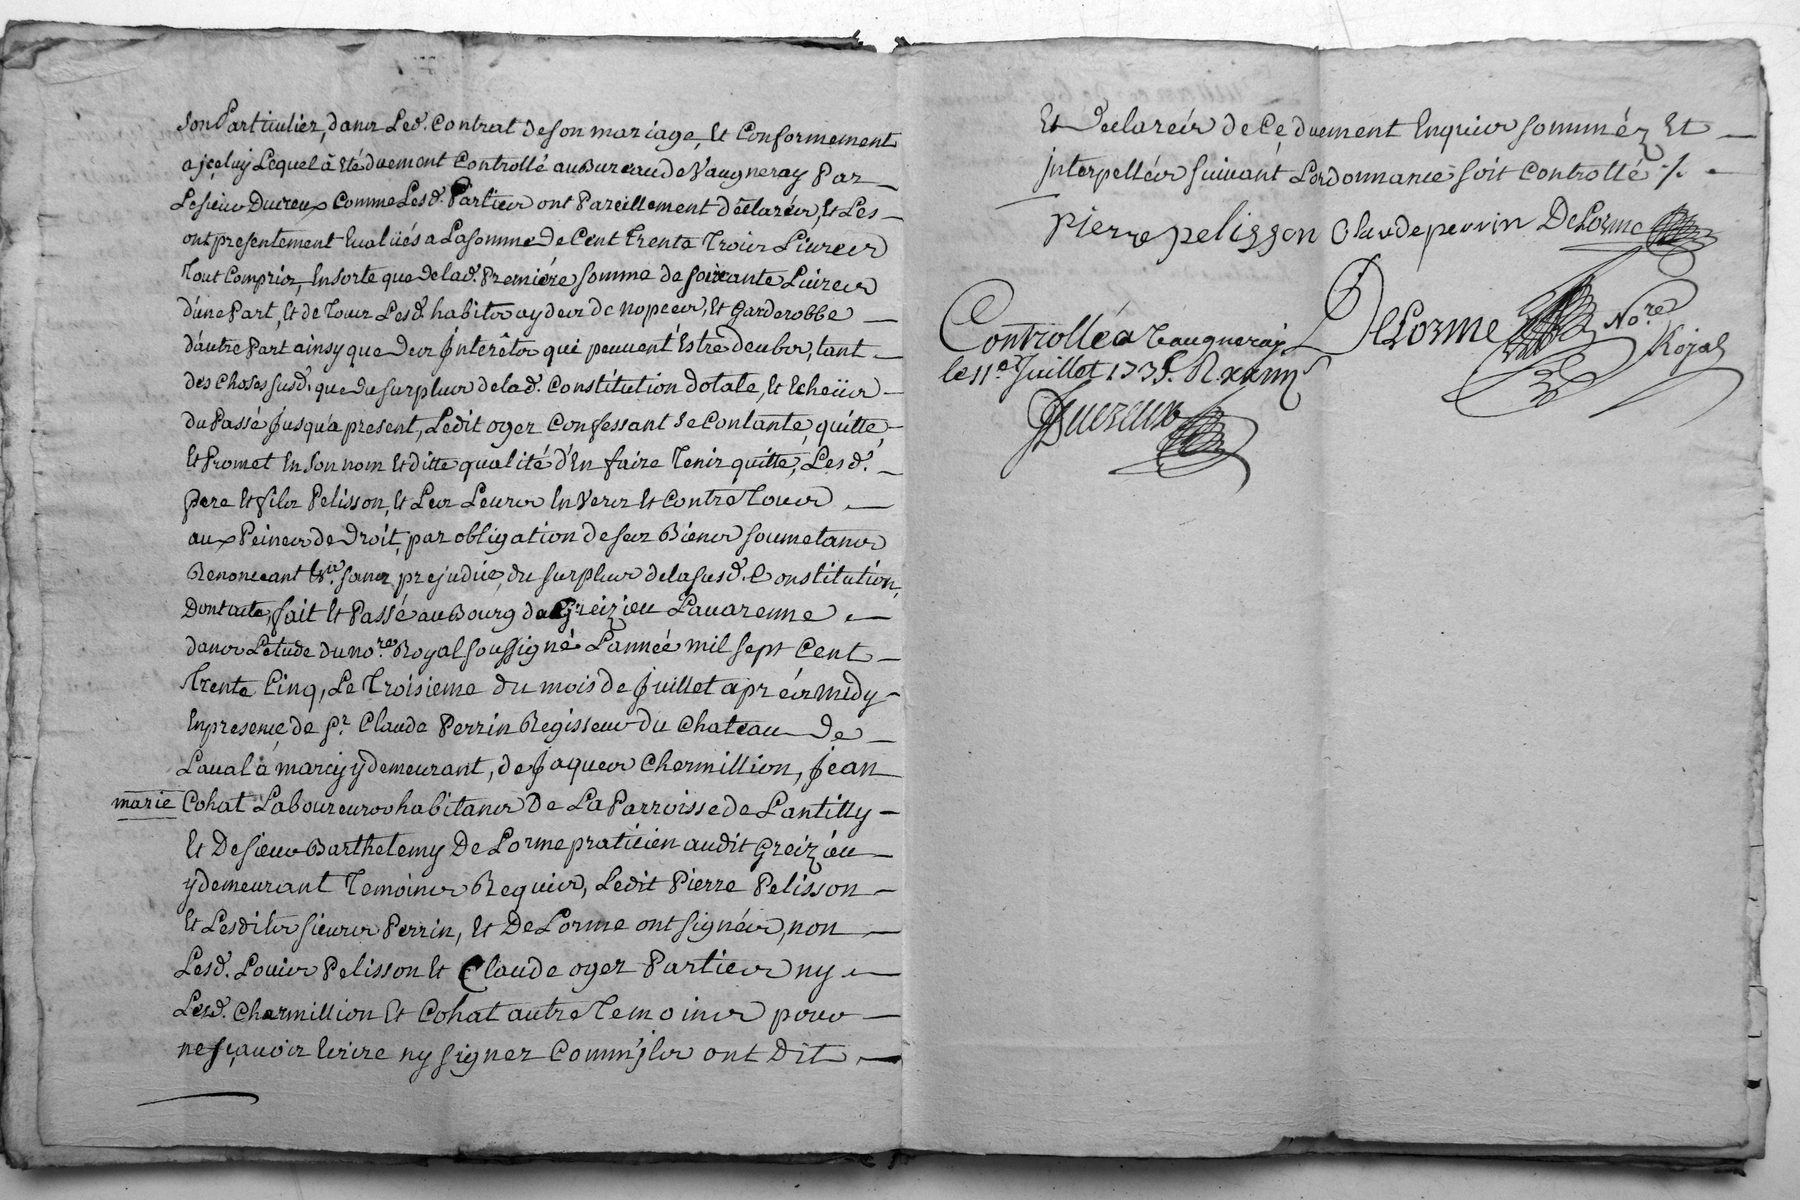 son Particulier, dans Led. Contrat de son mariage, Et Conformement
a jceluy Lequel à eté duement Controllé au Bureau de Vaugneray Par
Le sieur Ducreux Comme Lesd. Parties ont Pareillement déclarés, Et Les
ont presentement Evalüés a La somme de Cent trente trois Livres
Tout Compris, Ensorte que de lad. Premiére somme de soixante Livres
d'une Part, Et de Tous Lesd. habits aydes de nopces, Et Garderobbe
d'autre Part ainsy que des Jnterêts qui peuvent Estre deubs, tant
des Choses susd. que du surplus de lad. Constitution dotale, Et Echeüs
du Passé Jusqu'a present, Ledit oger Confessant se Contante, quitte,
Et Promet En son nom Et ditte qualité d'En faire Tenir quitte, Lesd.
pere Et fils Pelisson, Et Les Leurs Envers Et Contre Tous
aux Peines de droit, par obligation de ses Biens soumetans
Renonceant &ra. sans prejudice du surplus de la susd. Constitution,
Dont acte, fait Et Passé au Bourg de Greizieu Lavarenne
dans L'etude du no.re Royal soussigné L'année mil sept Cent
Trente Cinq, Le Troisieme du mois de Juillet aprés midy
En presence de Sr. Claude Perrin Regisseur du Chateau de
Laval à marcy ÿ demeurant, de Jaques Chermillion, Jean
marie Cohat Laboureurs habitans De La Parroisse de Lantilly
Et De sieur Barthelemy De Lorme praticien audit Greizieu
ÿ demeurant Temoins Requis, Ledit Pierre Pelisson
Et Lesdits sieurs Perrin, Et De Lorme ont signés, non
Lesd. Louis Pelisson Et Claude oger Parties ny
Lesd. Chermillion Et Cohat autre Temoins pour
ne sçavoir Ecrire ny signer Comm'jls ont Dit
Et Declarés de Ce duement Enquis sommés Et
jnterpellés suivant L'ordonnance soit Controllé ·/.
pierre pelisson Claude perrin DeLorme
Controllé a Vaugneray DeLorme No.re Royal
le 11e Juillet 1735. R. xxiiii s
Ducreux